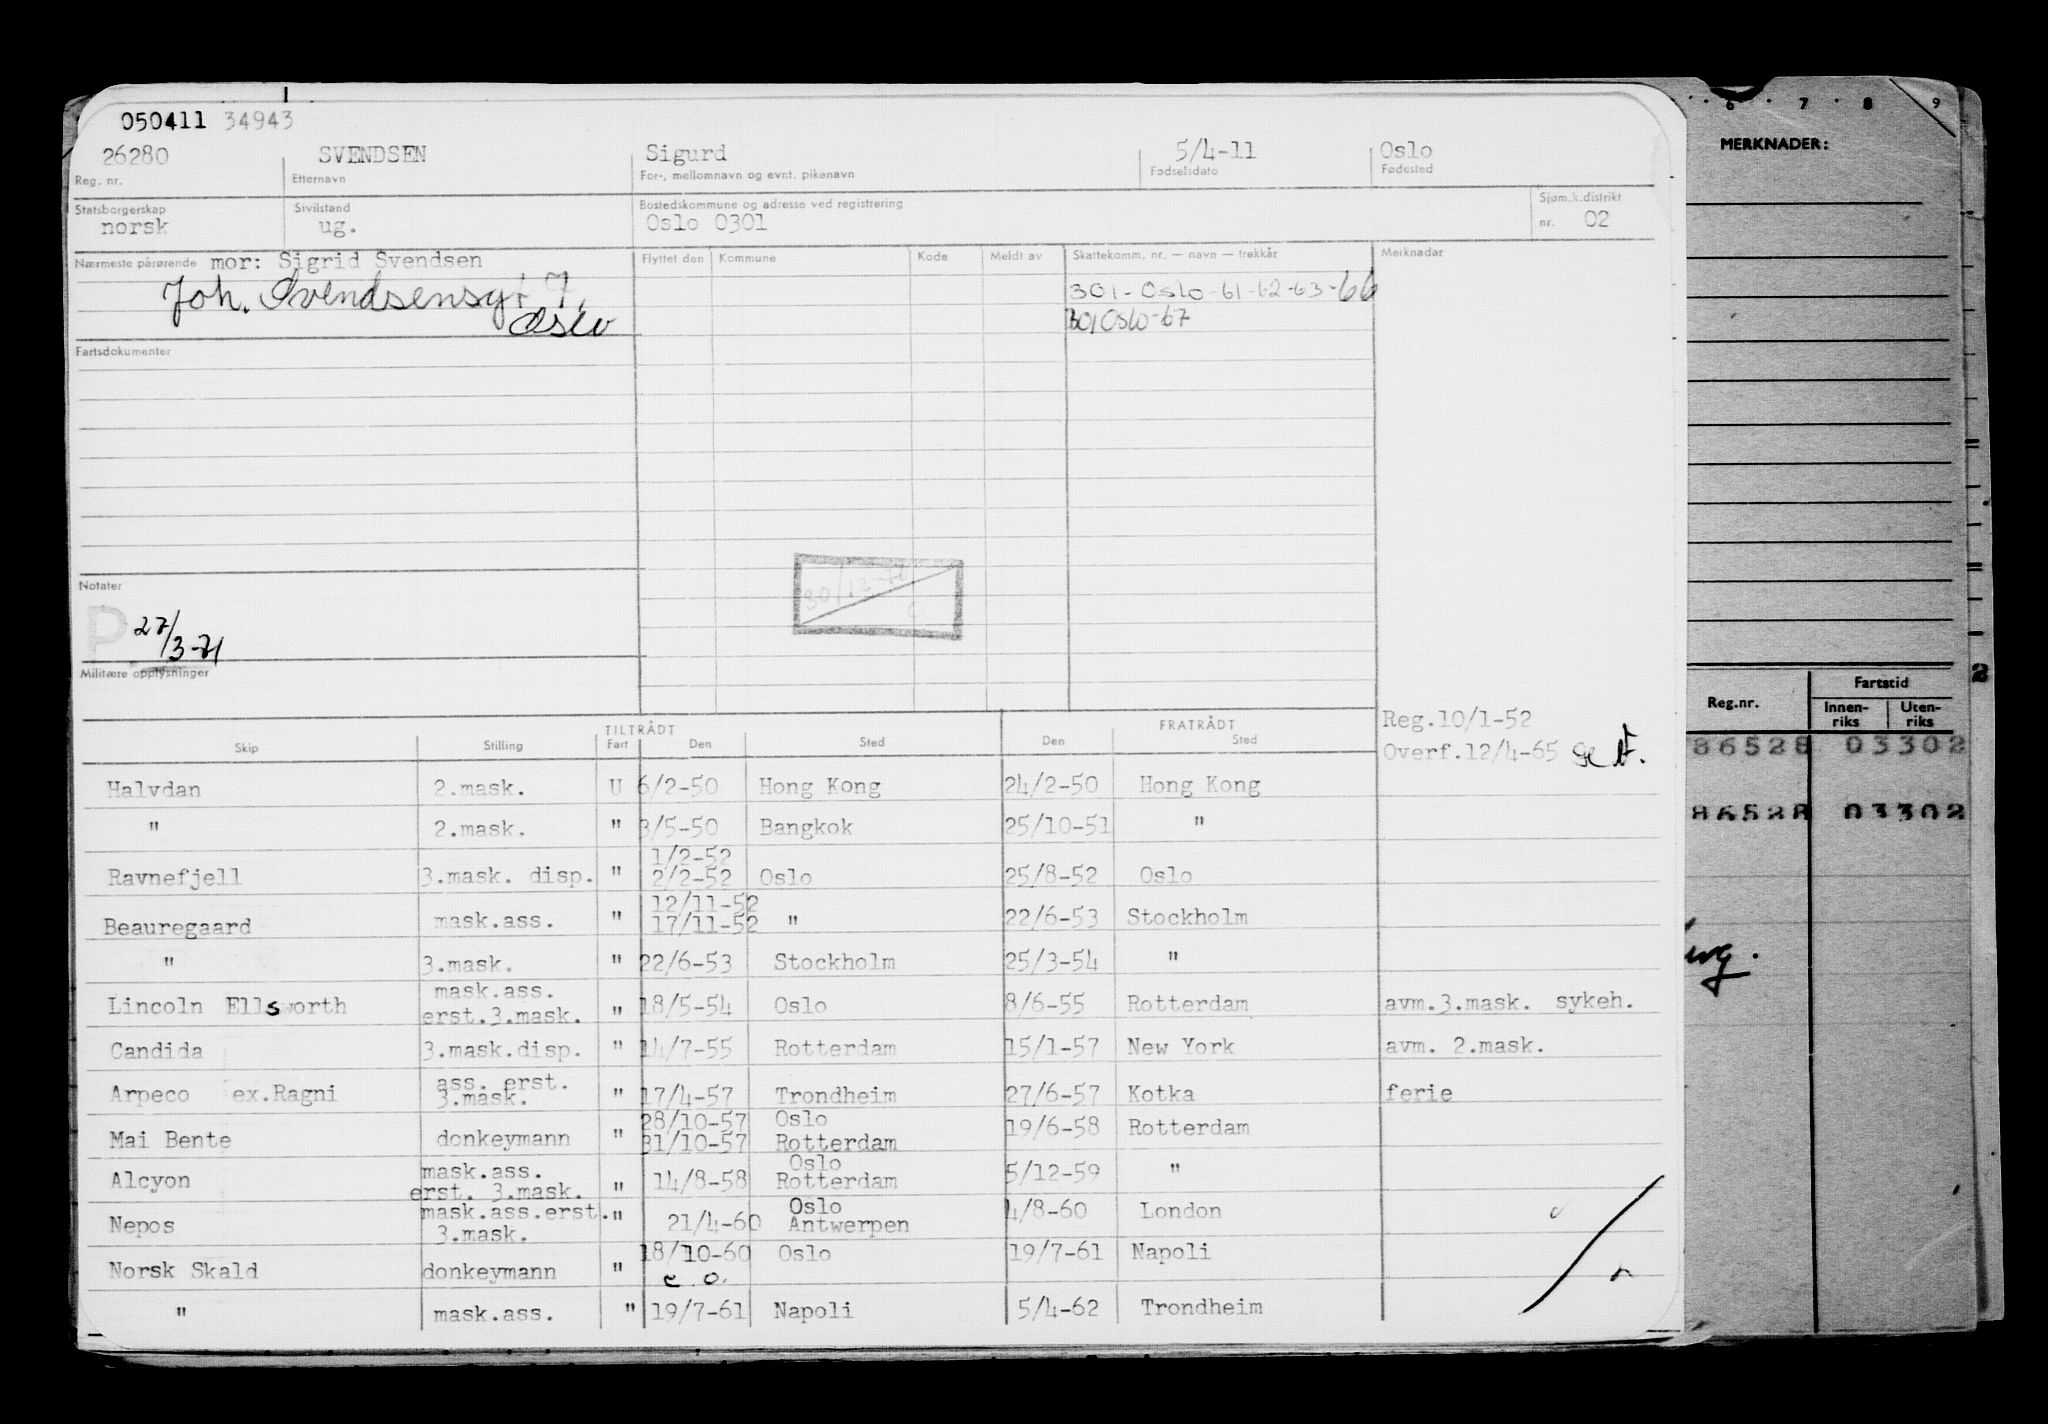 050411 34943
26280 SVENDSEN Sigurd 5/4-11 Oslo
Reg. nr. Etternavn For-, mellomnavn og evnt. pikenavn Fødselsdato Fødested
Statsborgerskap Sivilstand Bostedskommune og adresse ved registrering Sjøm.k.distrikt
norsk ug. Oslo 0301 nr. 02
Nærmeste pårørende mor: Sigrid Svendsen Flyttet den Kommune Kode Meldt av Skattekomm. nr. — navn — trekkår Merknader
Joh. Svendsensgt 7, 301-Oslo-61-62-63-66
Oslo 301 Oslo-67
Fartsdokumenter
Notater
P 27/3-71
Militære opplysninger
30/12-70
Reg.10/1-52
Overf.12/4-65
TILTRÅDT FRATRÅDT
Skip Stilling Fart Den Sted Den Sted
Halvdan 2.mask. U 6/2-50 Hong Kong 24/2-50 Hong Kong
" 2.mask. " 3/5-50 Bangkok 25/10-51 "
1/2-52
Ravnefjell 3.mask. disp. " 2/2-52 Oslo 25/8-52 Oslo
12/11-52
Beauregaard mask.ass. " 17/11-52 " 22/6-53 Stockholm
" 3.mask. " 22/6-53 Stockholm 25/3-54 "
mask.ass.
Lincoln Ellsworth erst.3.mask. " 18/5-54 Oslo 8/6-55 Rotterdam avm.3.mask. sykeh.
Candida 3.mask.disp. " 14/7-55 Rotterdam 15/1-57 New York avm. 2.mask.
ass. erst.
Arpeco ex.Ragni 3.mask. " 17/4-57 Trondheim 27/6-57 Kotka ferie
28/10-57 Oslo
Mai Bente donkeymann " 31/10-57 Rotterdam 19/6-58 Rotterdam
mask.ass. Oslo
Alcyon erst. 3.mask. " 14/8-58 Rotterdam 5/12-59 "
mask.ass.erst. " Oslo
Nepos 3.mask. 21/4-60 Antwerpen 4/8-60 London
18/10-60 Oslo 19/7-61 Napoli
Norsk Skald donkeymann " e.o.
" mask.ass. " 19/7-61 Napoli 5/4-62 Trondheim
6 7 8 9
MERKNADER:
2
Reg.nr. Fartstid
Innen-riks Uten-riks
86528 03302
86528 03302